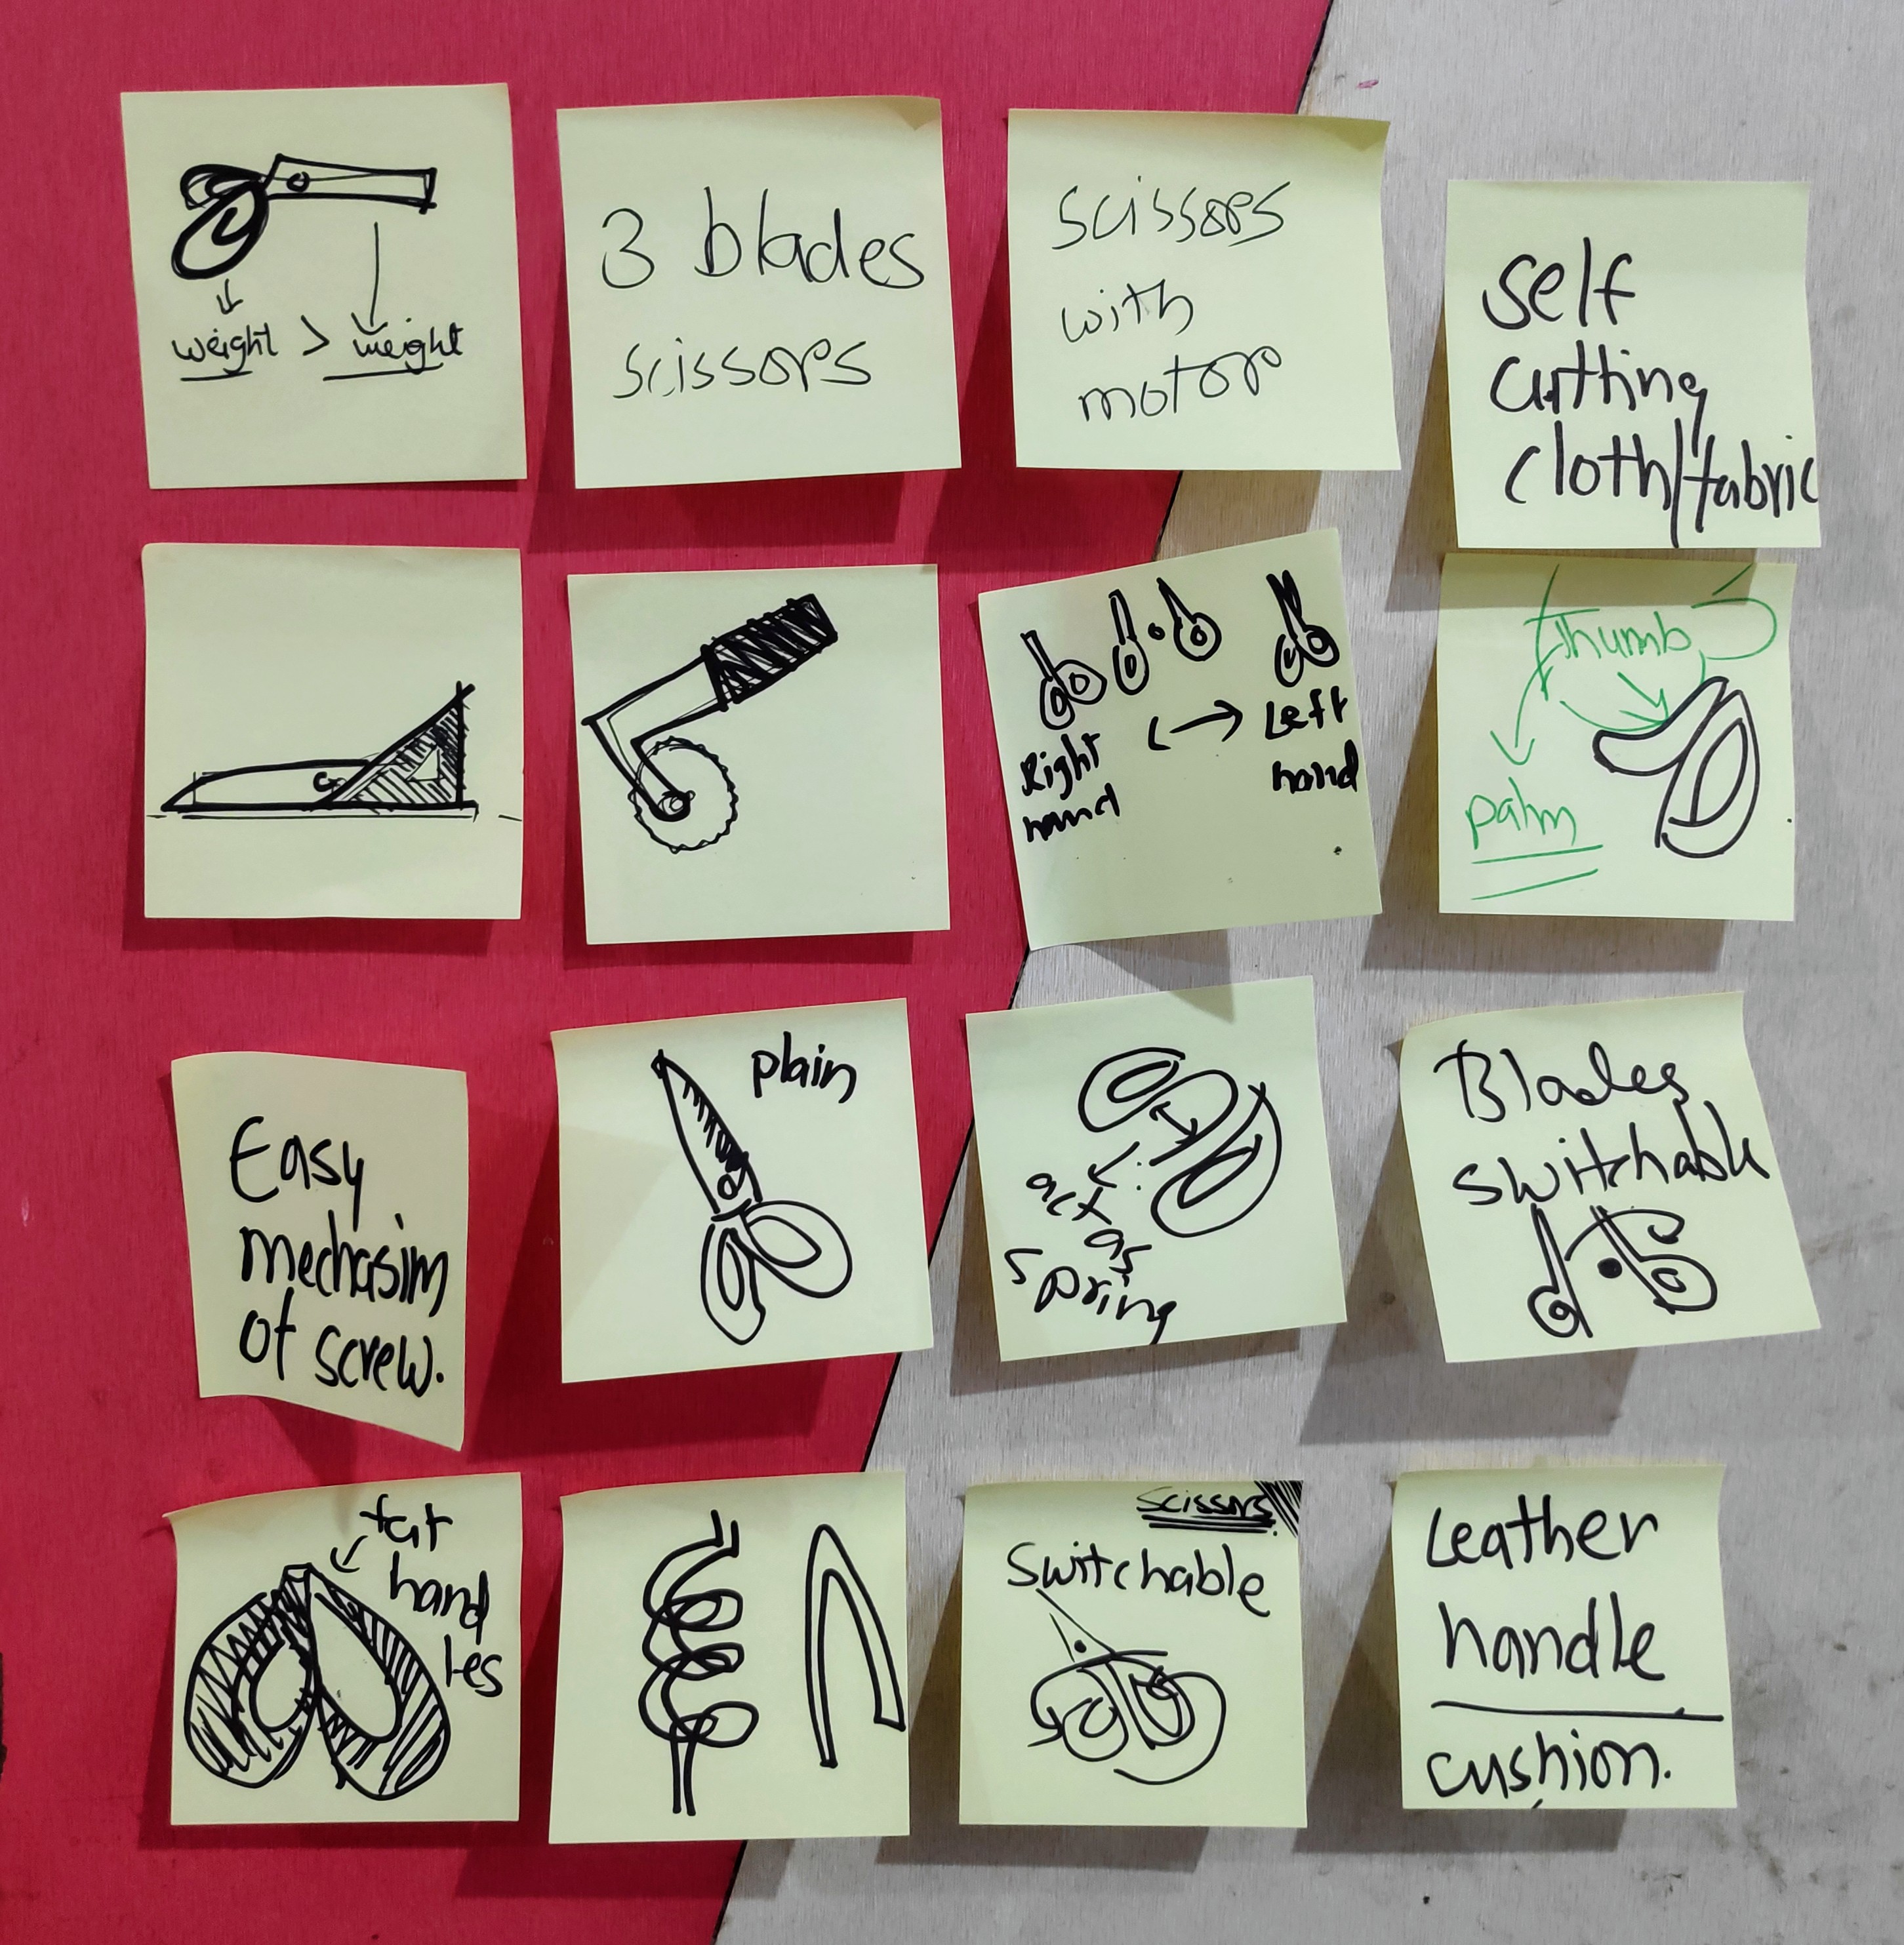 weight > weight
3 blades
scissors
scissors
with
motor
self
cutting
cloth/fabric
Right
hand
Left
hand
thumb
palm
Easy
mechasim
of screw.
plain
act
as
spring
Blades
switchable
fat
hand
les
scissors
switchable
Leather
handle
cushion.